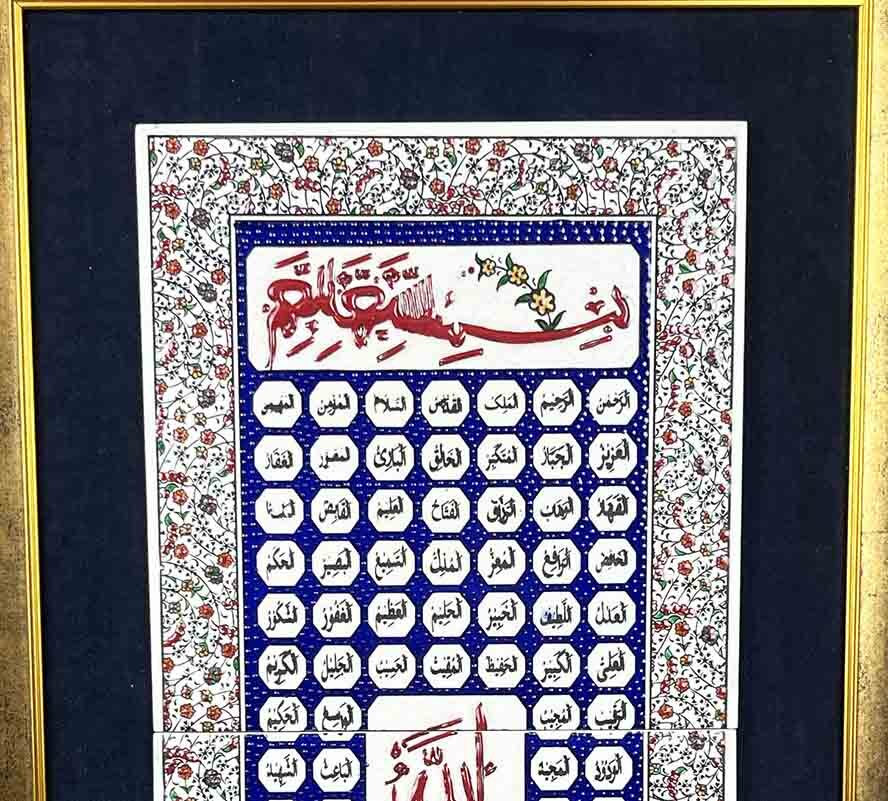 بسم الله الرحمن الرحيم
الرحمن الرحيم الملك القدوس السلام المؤمن المهيمن
العزيز الجبار المتكبر الخالق البارئ المصور الغفار
القهار الوهاب الرزاق الفتاح العليم القابض الباسط
الخافض الرافع المعز المذل السميع البصير الحكم
العدل اللطيف الخبير الحليم العظيم الغفور الشكور
العلي الكبير الحفيظ المقيت الحسيب الجليل الكريم
الرقيب المجيب الواسع الحكيم
الودود المجيد الله الباعث الشهيد